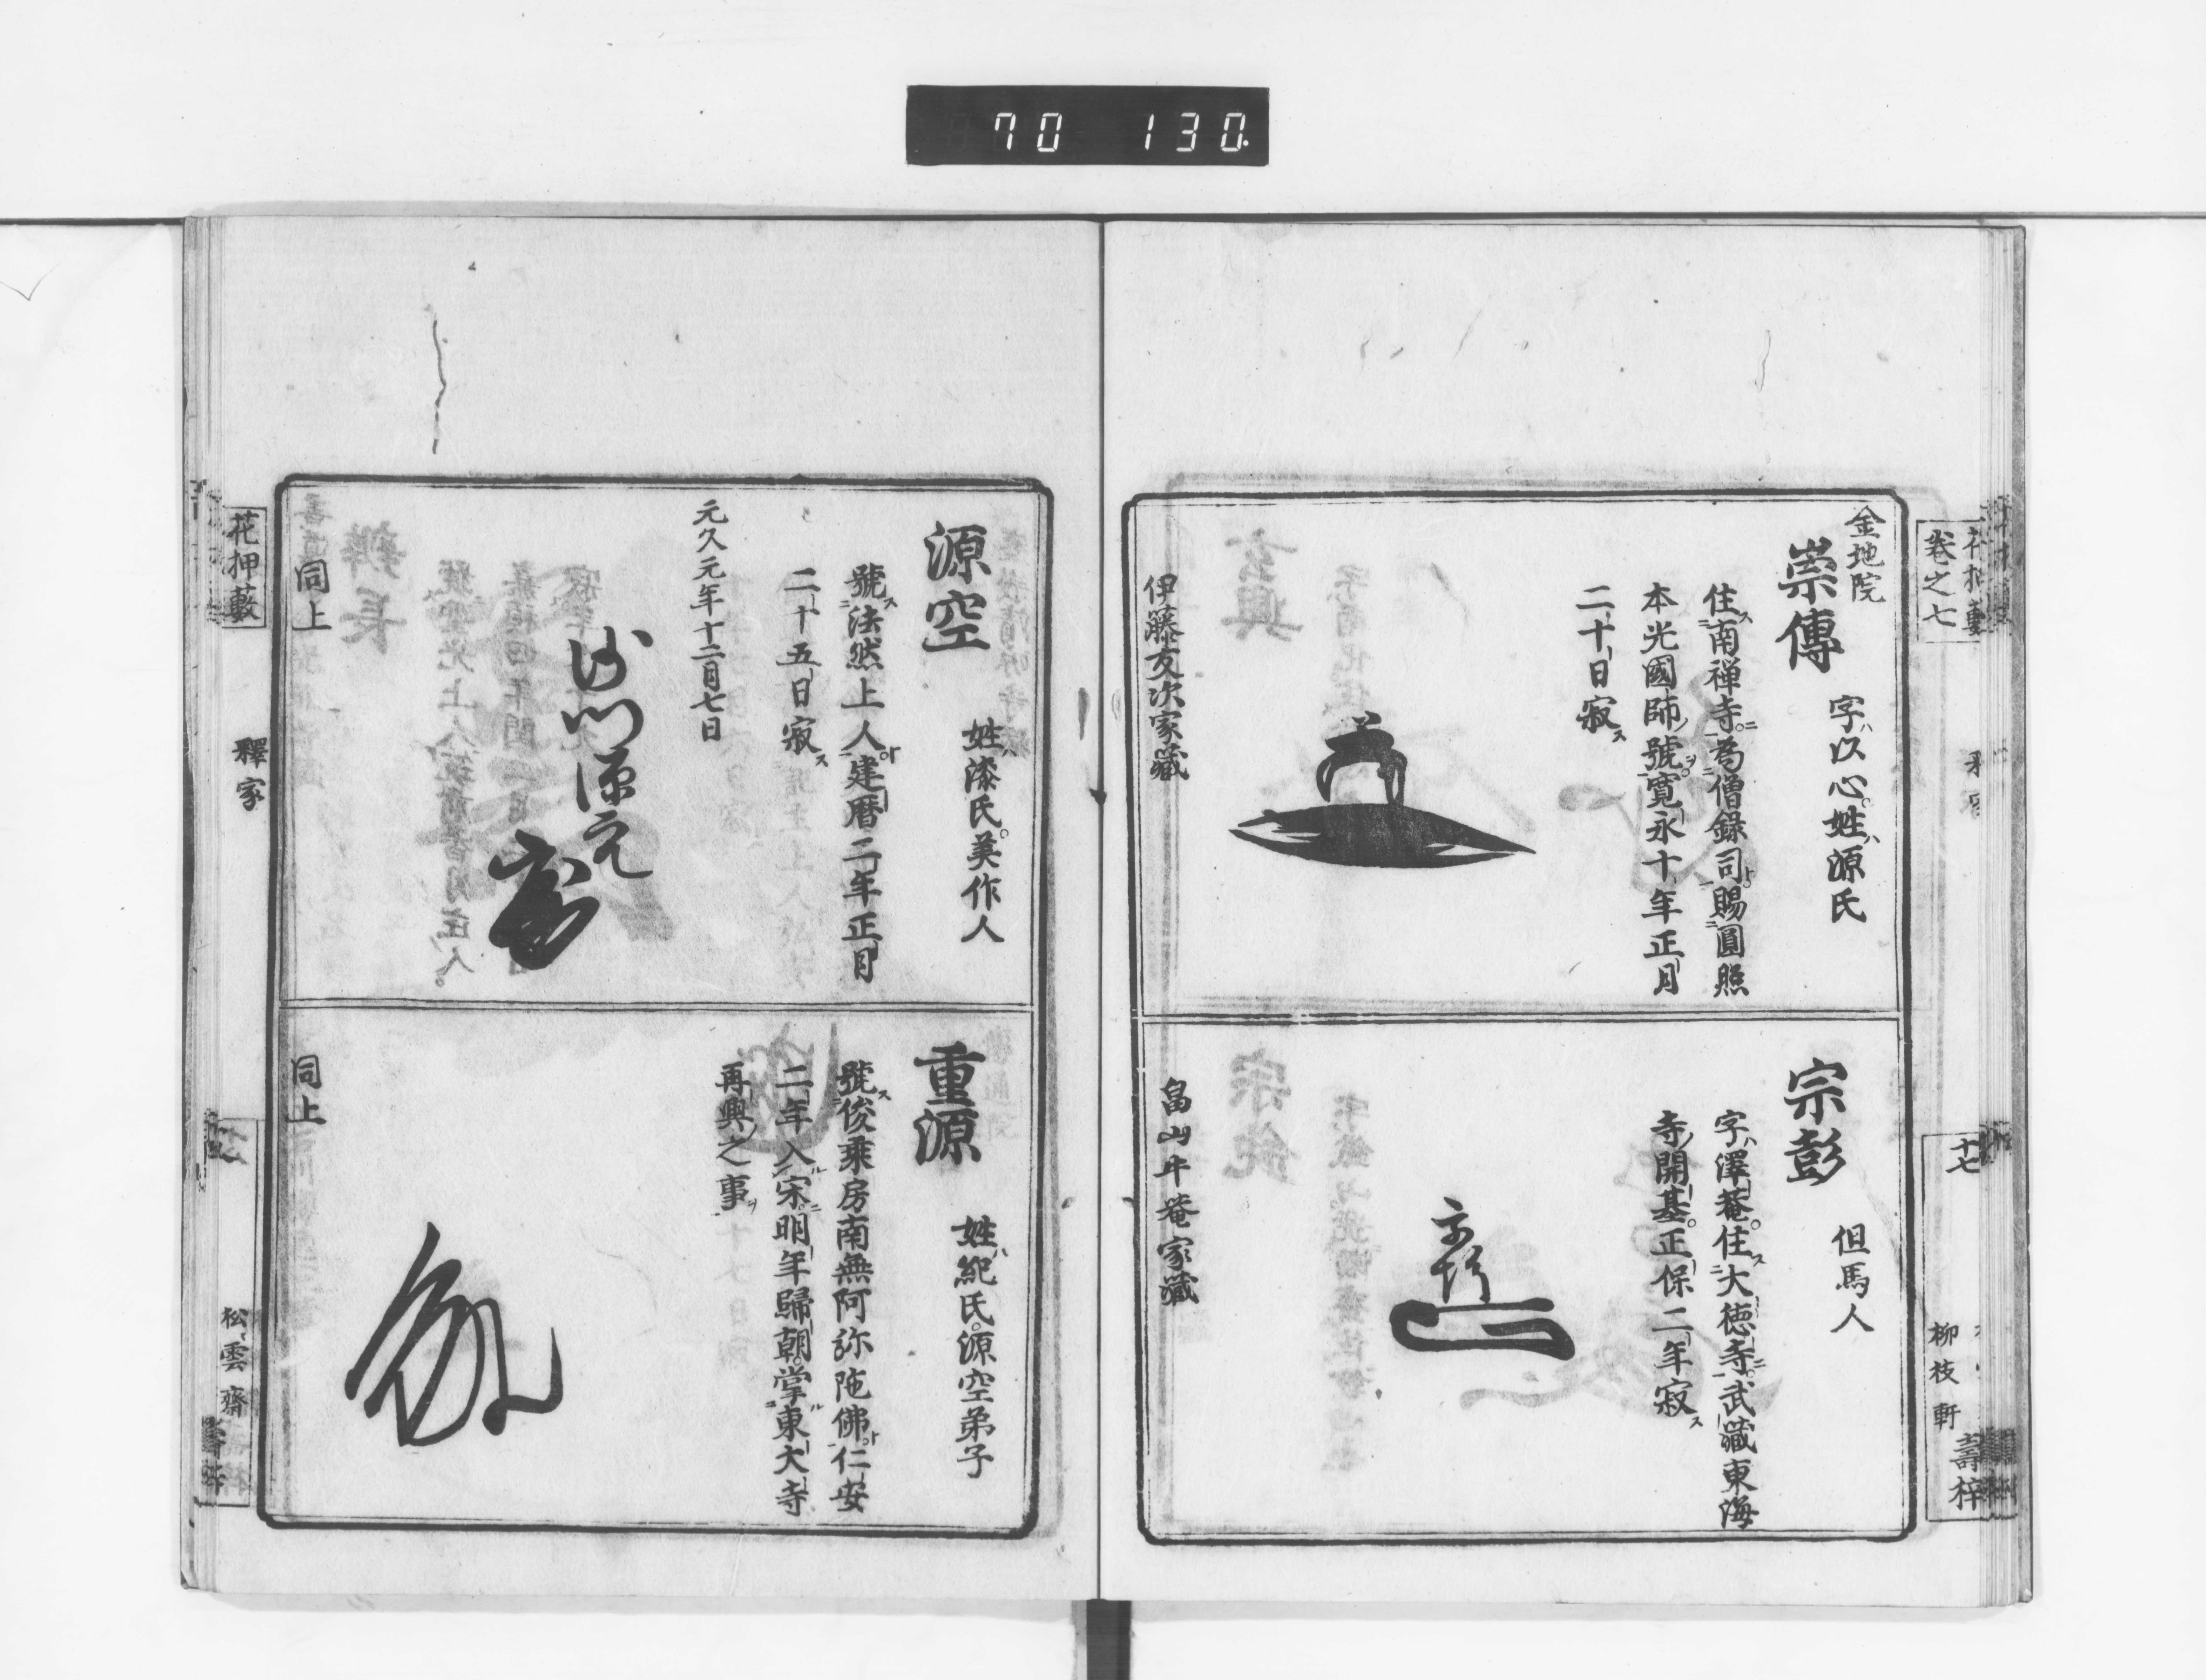 70 130
卷之七
十七
柳枝軒
壽梓
金地院
崇傳
字ハ以心姓ハ源氏
住ス南禅寺ニ為僧録司ト賜圓照
本光國師ノ號ヲ寛永十年正月
二十日寂ス
伊藤友次家藏
宗彭
但馬人
字ハ澤菴住ス大徳寺ニ武藏東海
寺ノ開基正保二年寂ス
畠山牛菴家藏
源空
姓ハ漆氏美作人
號ス法然上人ト建暦二年正月
二十五日寂ス
元久元年十二月七日
沙門源空
重源
姓ハ紀氏源空弟子
號ス俊乘房南無阿弥陀佛ト仁安
二年入ル宋ニ明年歸朝掌ル東大寺
再興之事ヲ
同上
同上
花押藪
釋家
松雲齋